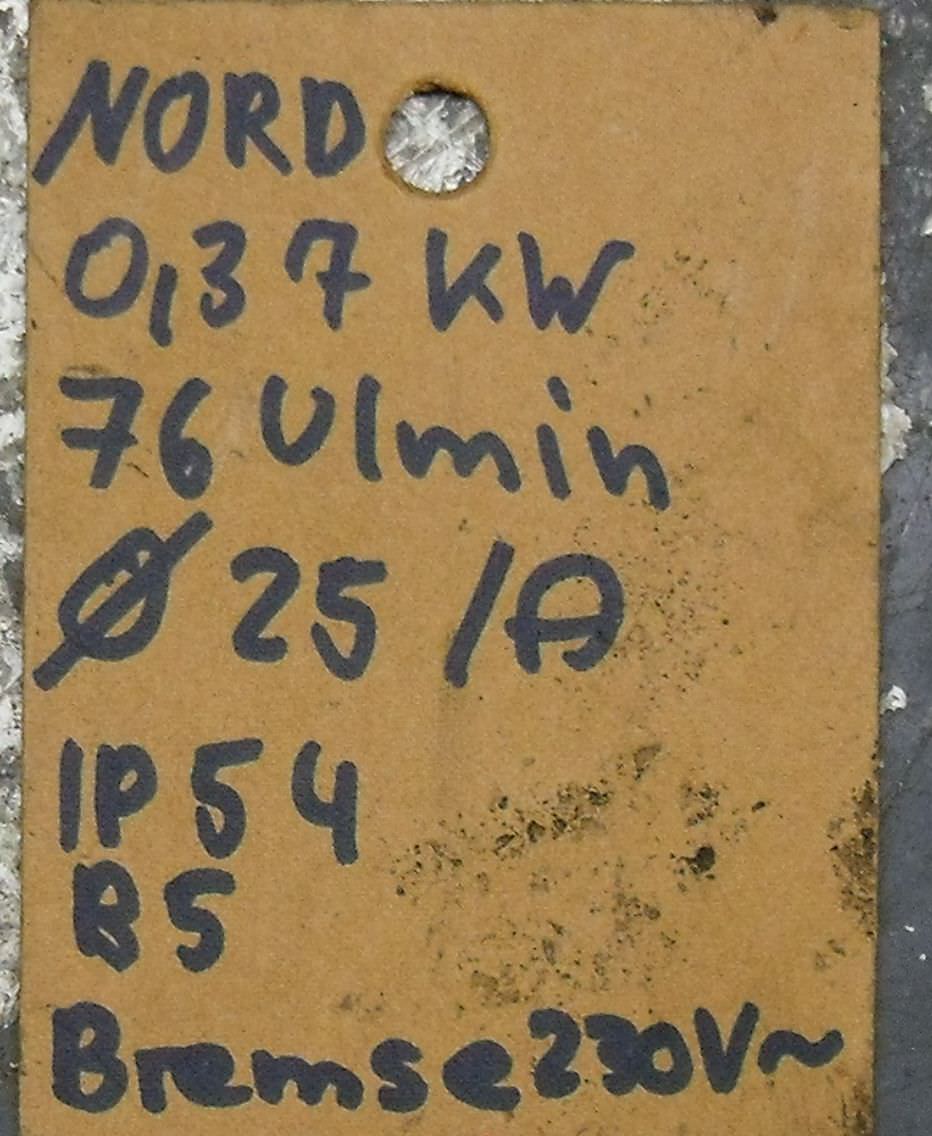 NORD
0,37 KW
76 U/min
Ø 25 /A
IP 54
B5
Bremse 230V~